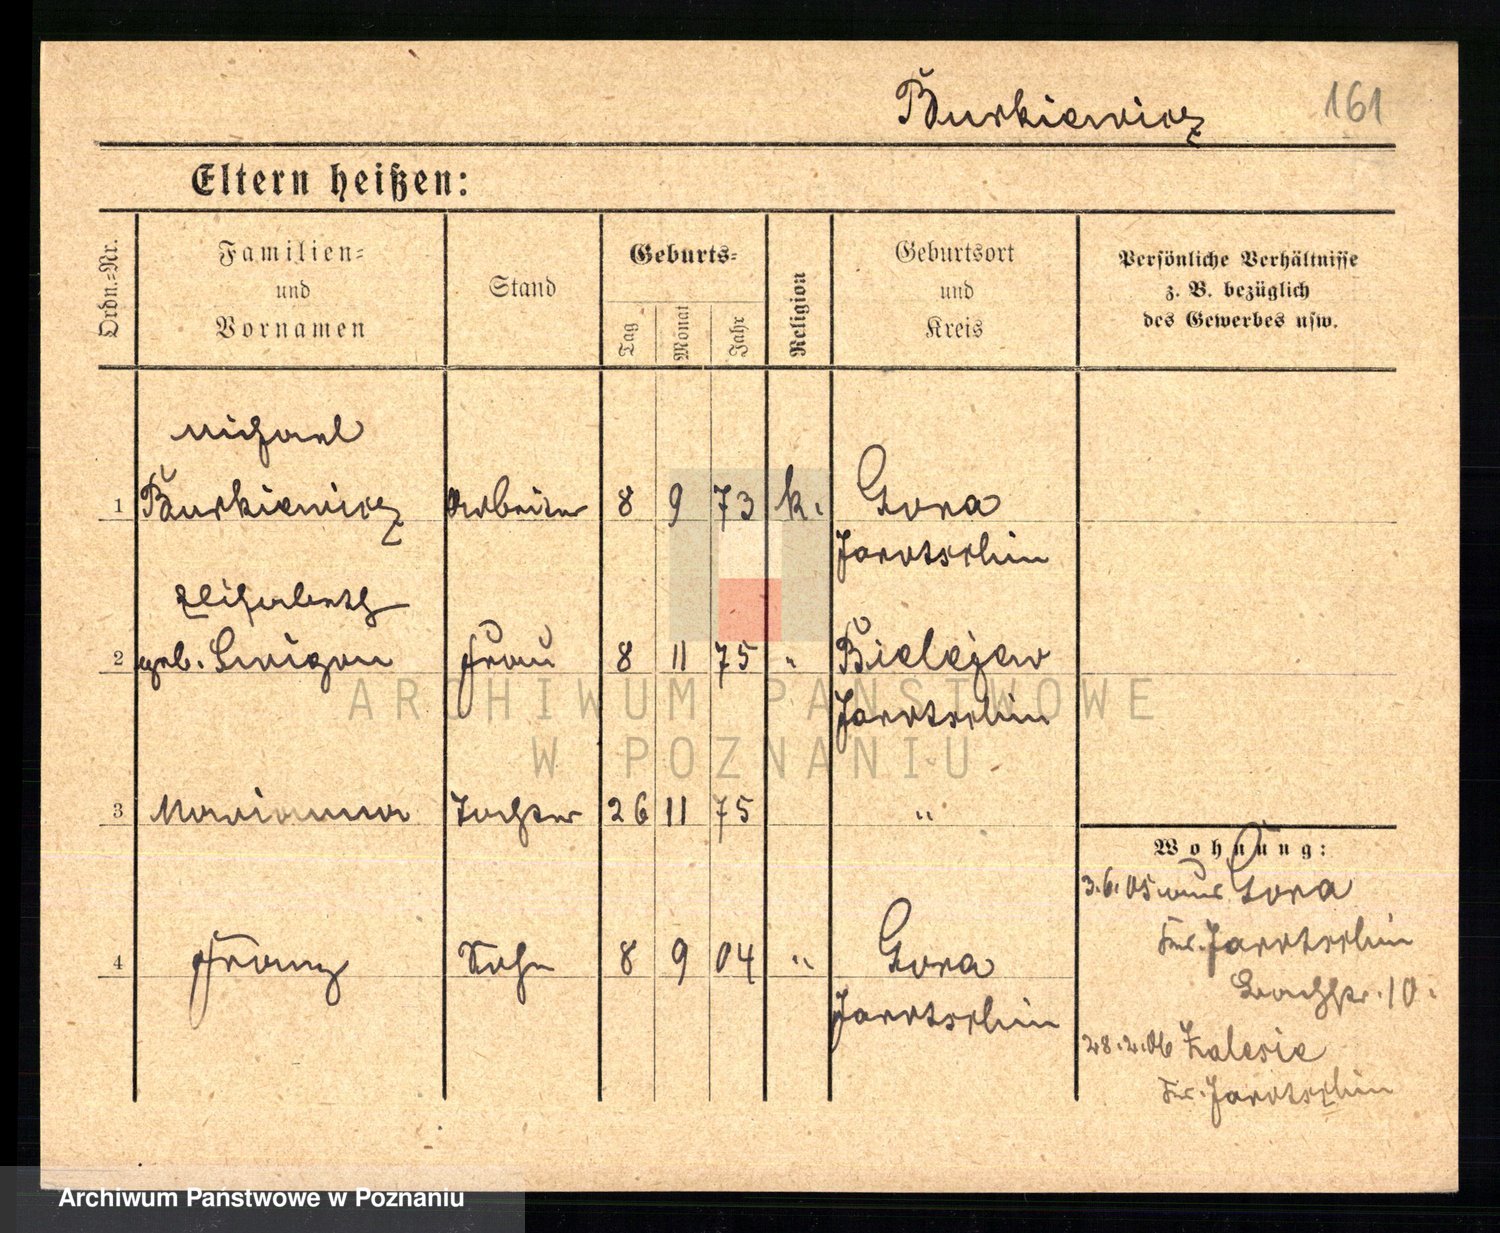 Burkiewicz
161
Eltern heißen:
Ordn.-Nr.
Familien-
und
Vornamen
Stand
Geburts-
Tag
Monat
Jahr
Religion
Geburtsort
und
Kreis
Persönliche Verhältnisse
z. B. bezüglich
des Gewerbes usw.
Michael
1 Burkiewicz Arbeiter 8 9 73 k. Gora
Jarotschin
Elisabeth
2 geb. Swigon Frau 8 11 75 " Bielejew
Jarotschin
3 Marianna Tochter 26 11 75 "
Wohnung:
3.6.05 Gora
Kr. Jarotschin
4 Franz Sohn 8 9 04 " Gora
Jarotschin
10.
28.2.06 Zalesie
Kr. Jarotschin
ARCHIWUM PAŃSTWOWE
W POZNANIU
Archiwum Państwowe w Poznaniu